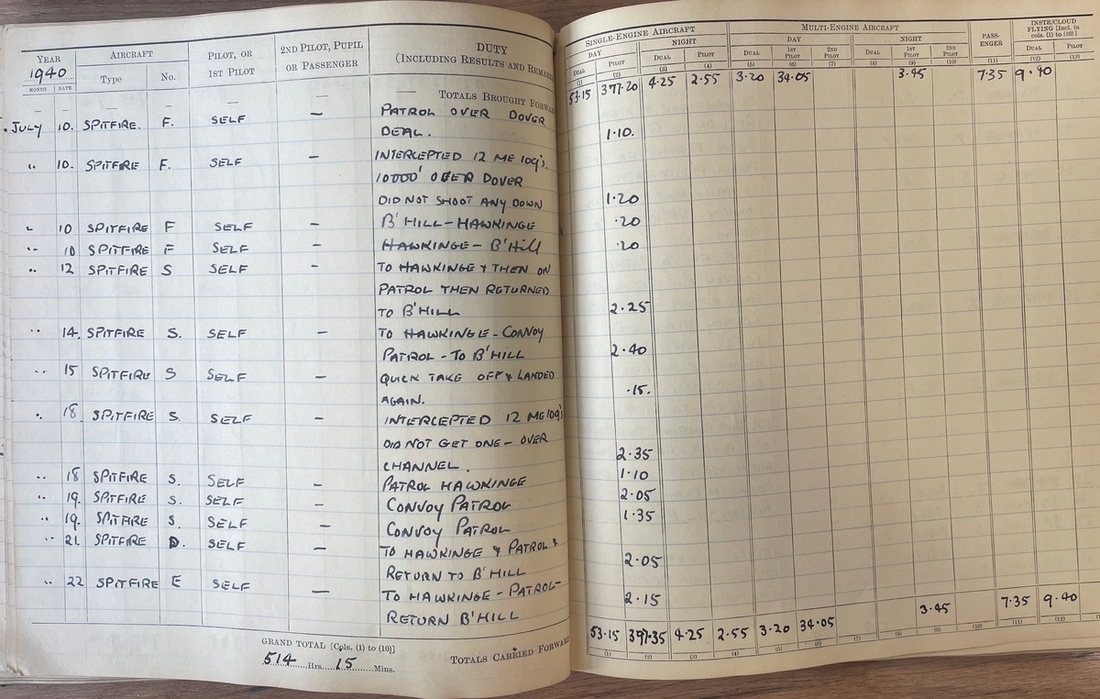 YEAR AIRCRAFT PILOT, OR 2ND PILOT, PUPIL DUTY
1940 Type No. 1ST PILOT OR PASSENGER (INCLUDING RESULTS AND REMARKS
MONTH DATE
— — — — — — — TOTALS BROUGHT FORWARD
JULY 10. SPITFIRE. F. SELF — PATROL OVER DOVER
DEAL.
" 10. SPITFIRE F. SELF — INTERCEPTED 12 ME 109's.
10000' OVER DOVER
DID NOT SHOOT ANY DOWN
" 10 SPITFIRE F SELF — B'HILL - HAWKINGE
" 10 SPITFIRE F SELF — HAWKINGE - B'HILL
" 12 SPITFIRE S SELF - TO HAWKINGE & THEN ON
PATROL THEN RETURNED
TO B'HILL
" 14. SPITFIRE S. SELF — TO HAWKINGE - CONVOY
PATROL - TO B'HILL
" 15 SPITFIRE S SELF — QUICK TAKE OFF & LANDED
AGAIN.
" 18. SPITFIRE S. SELF — INTERCEPTED 12 ME 109's
DID NOT GET ONE - OVER
CHANNEL.
" 18 SPITFIRE S. SELF — PATROL HAWKINGE
" 19. SPITFIRE S. SELF — CONVOY PATROL
" 19. SPITFIRE S. SELF — CONVOY PATROL
" 21. SPITFIRE D. SELF — TO HAWKINGE & PATROL &
RETURN TO B'HILL
" 22 SPITFIRE E SELF — TO HAWKINGE - PATROL -
RETURN B'HILL
GRAND TOTAL [Cols. (1) to (10)]
514 Hrs. 15 Mins.
TOTALS CARRIED FORWARD
SINGLE-ENGINE AIRCRAFT MULTI-ENGINE AIRCRAFT PASS-ENGER INSTR/CLOUD FLYING [Incl. in cols. (1) to (10)]
DAY NIGHT DAY NIGHT
DUAL PILOT DUAL PILOT DUAL 1ST PILOT 2ND PILOT DUAL 1ST PILOT 2ND PILOT DUAL PILOT
(1) (2) (3) (4) (5) (6) (7) (8) (9) (10) (11) (12) (13)
53.15 377.20 4.25 2.55 3.20 34.05 3.45 7.35 9.40
1.10.
1.20
.20
.20
2.25
2.40
.15.
2.35
1.10
2.05
1.35
2.05
2.15
53.15 397.35 4.25 2.55 3.20 34.05 3.45 7.35 9.40
(1) (2) (3) (4) (5) (6) (7) (8) (9) (10) (11) (12)